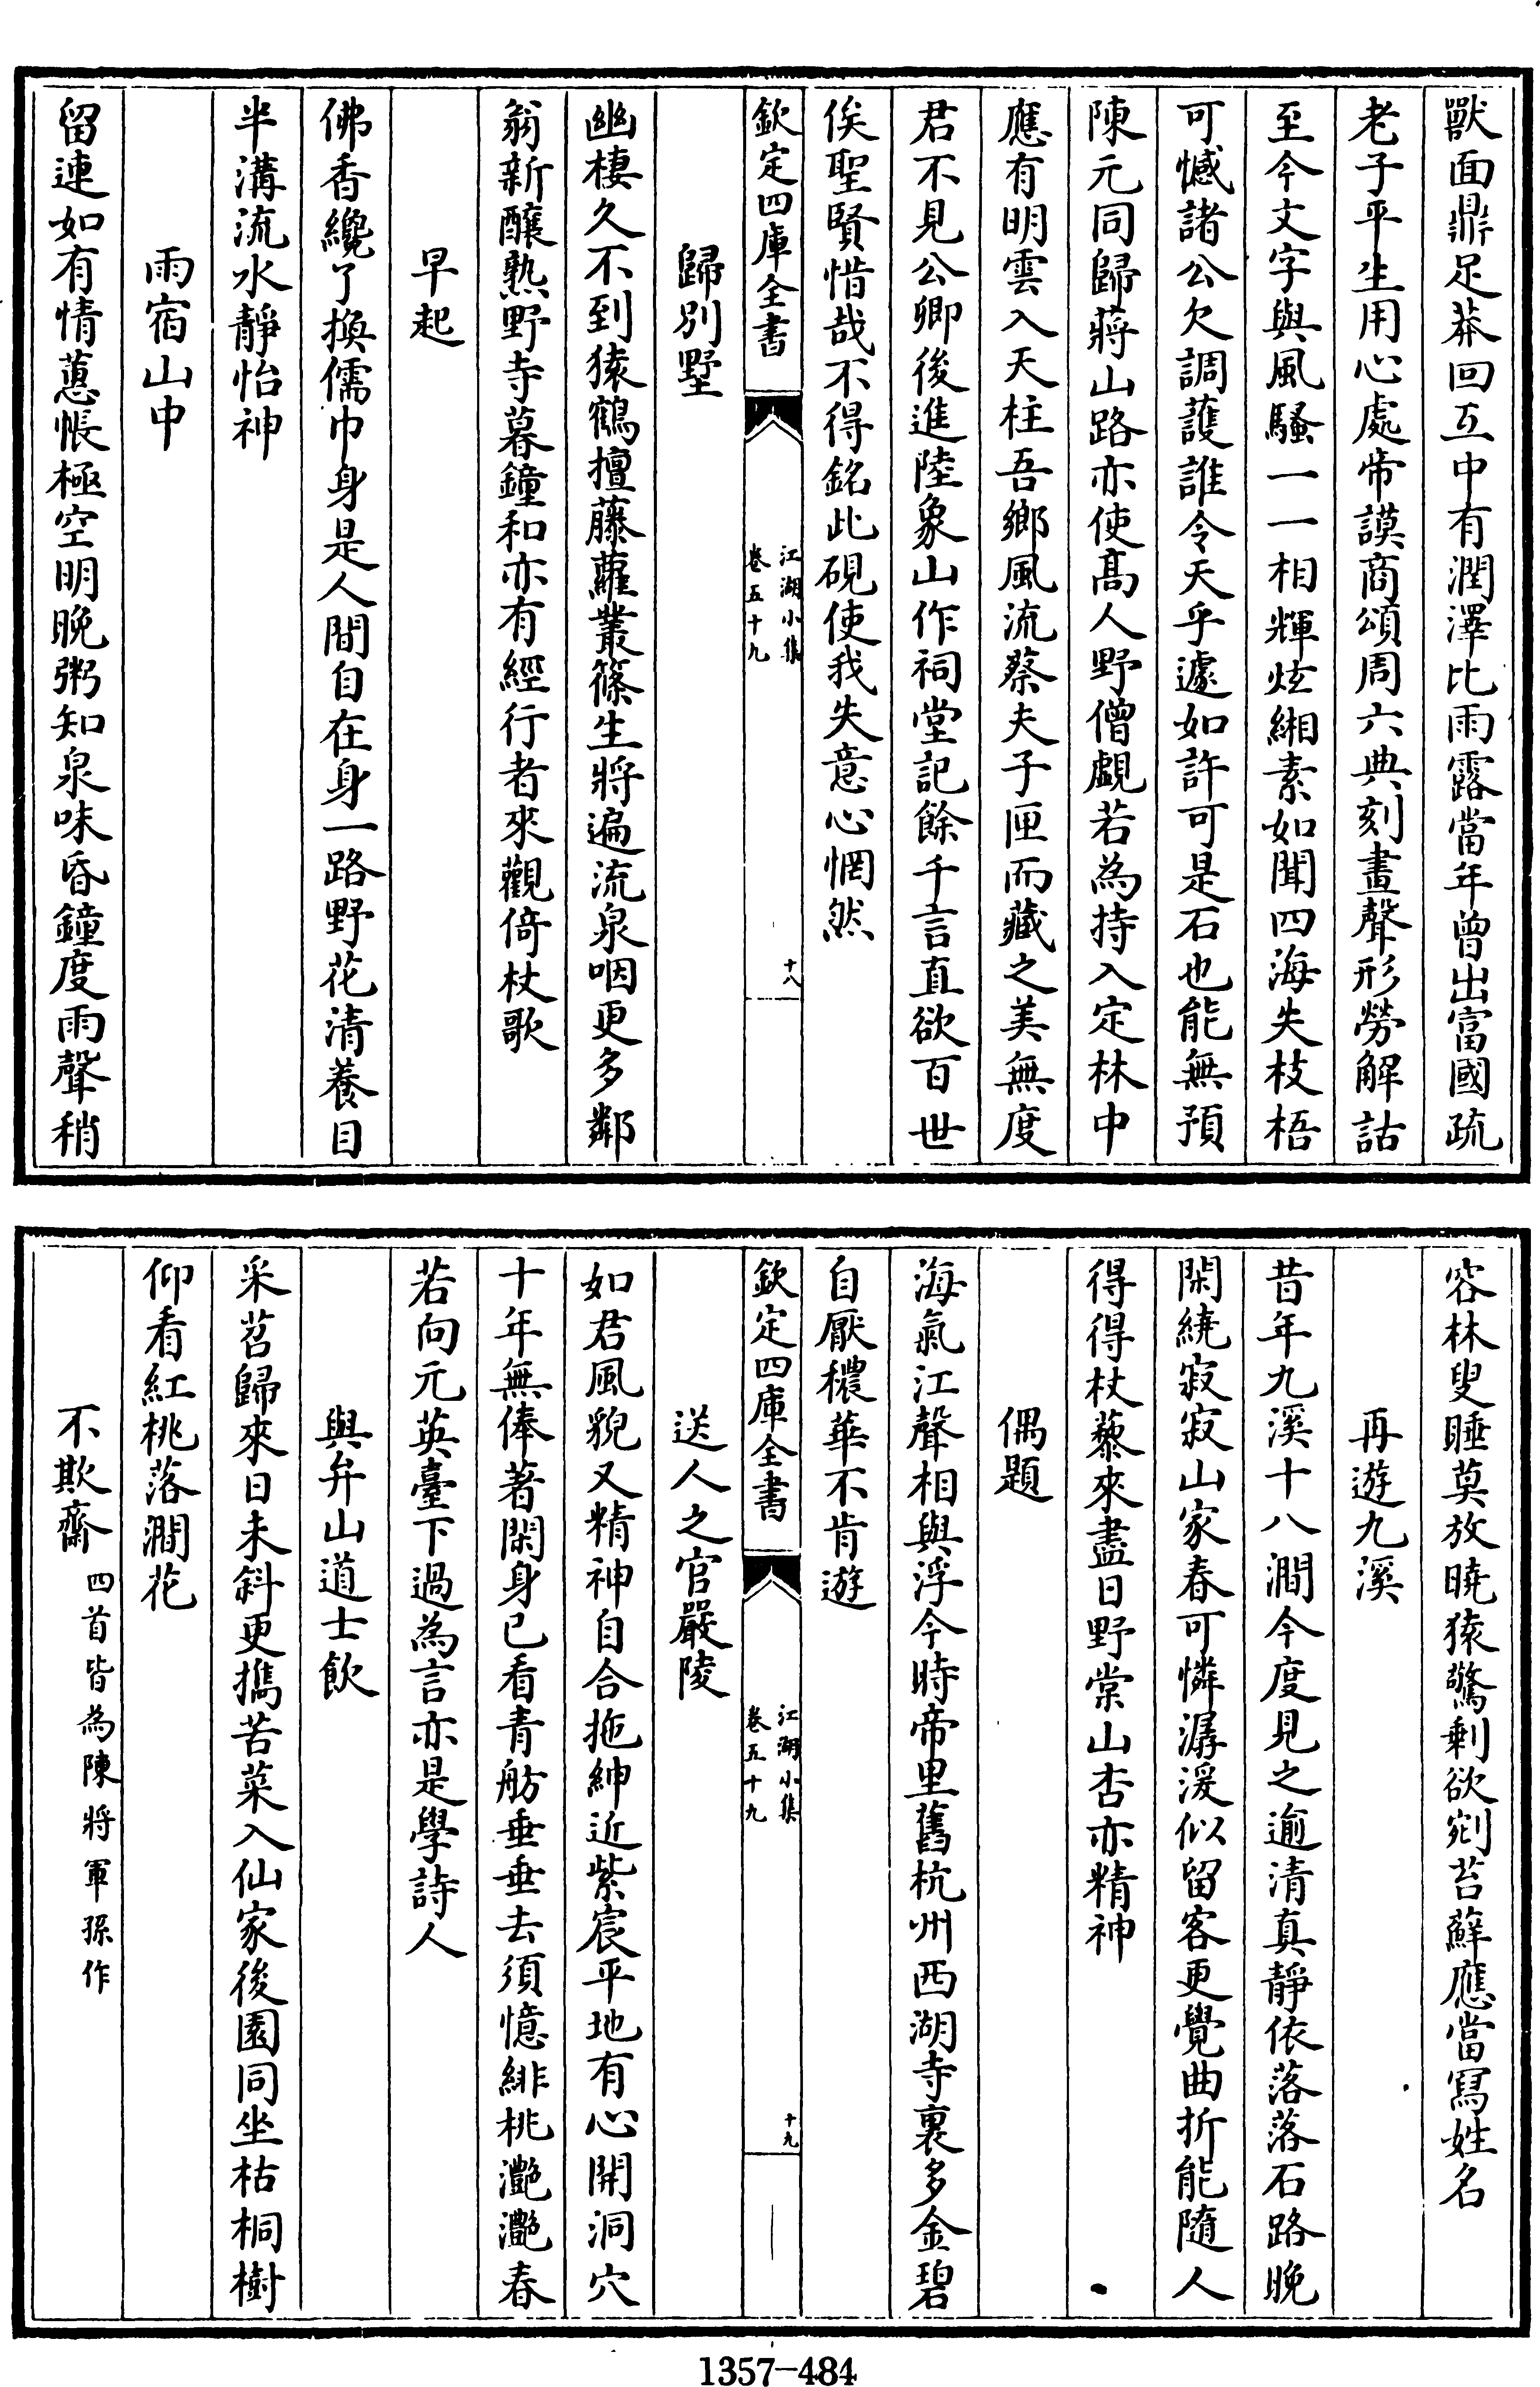 獸面鼎足莽回互中有潤澤比雨露當年曾出富國疏
老子平生用心處帝謨商頌周六典刻畫聲形勞解詁
至今文字與風騷一一相輝炫緗素如聞四海失枝梧
可憾諸公欠調護誰令天乎遽如許可是石也能無預
陳元同歸蔣山路亦使髙人野僧覷若為持入定林中
應有明雲入天柱吾鄉風流蔡夫子匣而藏之美無度
君不見公卿後進陸象山作祠堂記餘千言直欲百世
俟聖賢惜哉不得銘此硯使我失意心惘然
欽定四庫全書
江湖小集
卷五十九
十八
歸別墅
幽棲久不到猿鶴擅藤蘿叢篠生將遍流泉咽更多鄰
翁新醸熟野寺暮鐘和亦有經行者來觀倚杖歌
早起
佛香纔了換儒巾身是人間自在身一路野花清養目
半溝流水靜怡神
雨宿山中
留連如有情蕙帳極空明晚粥知泉味昏鐘度雨聲稍
容林叟睡莫放曉猿驚剩欲剜苔蘚應當寫姓名
再遊九溪
昔年九溪十八澗今度見之逾清真靜依落落石路晚
閑繞寂寂山家春可憐潺湲似留客更覺曲折能隨人
得得杖藜來盡日野棠山杏亦精神
偶題
海氣江聲相與浮今時帝里舊杭州西湖寺裏多金碧
自厭穠華不肯遊
欽定四庫全書
江湖小集
卷五十九
十九
送人之官嚴陵
如君風貌又精神自合拖紳近紫宸平地有心開洞穴
十年無俸著閑身已看青舫垂垂去須憶緋桃灧灧春
若向元英臺下過為言亦是學詩人
與弁山道士飲
采苕歸來日未斜更擕苦菜入仙家後園同坐枯桐樹
仰看紅桃落澗花
不欺齋 四首皆為陳將軍孫作
1357-484